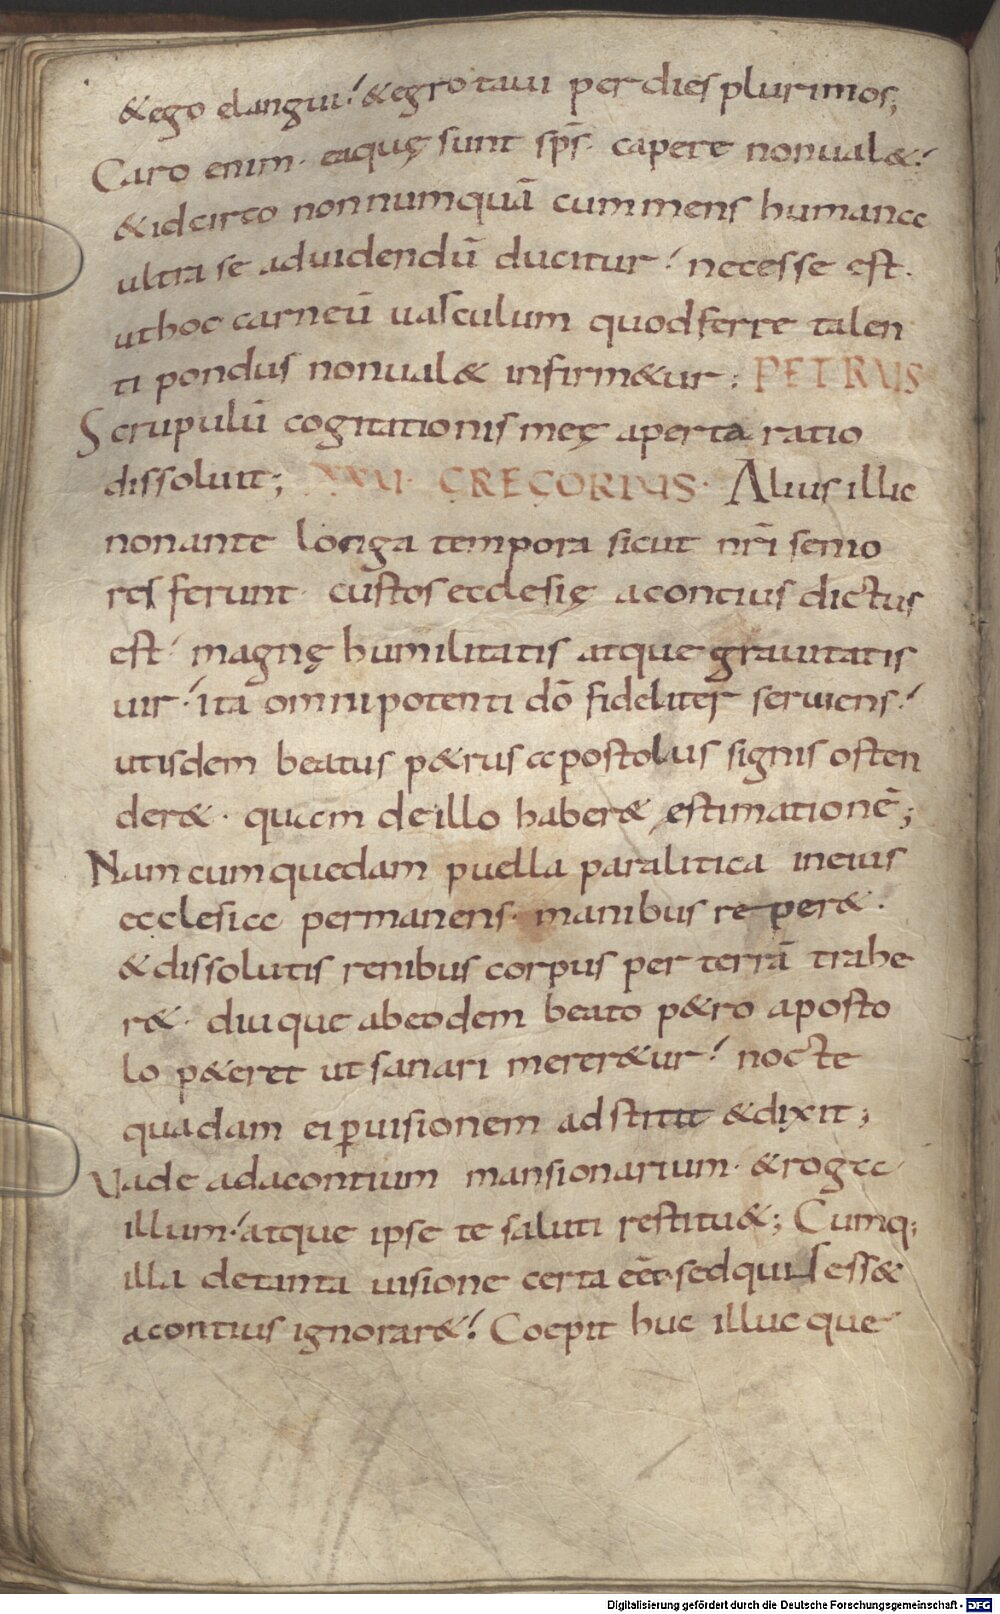 &ego elangui! &egrotaui per dies plurimos;
Caro enim· eaquę sunt sp̄s· capere nonual&!
&idcirco nonnumquā cummens humanae
ultra se aduidendū ducitur! necesse est·
uthoc carneū uasculum quodferre talen
ti pondus nonual& infirm&ur: PETRUS
Scrupulū cogitationis meę aperta ratio
dissoluit; XXVI· GREGORIUS· Alius illic
nonante longa tempora sicut nr̄i senio
res ferunt· custos ecclesię acontius dictus
est! magnę humilitatis atque grauitatis
uir! ita omnipotenti dō fideliter seruiens!
utisdem beatus p&rus apostolus signis osten
der&· quam deillo haber& estimationē;
Nam cum quedam puella paralitica ineius
ecclesia permanens· manibus reper&·
& dissolutis renibus corpus per terrā trahe
r&· diuque abeodem beato p&ro aposto
lo p&eret ut sanari merer&ur! nocte
quadam ei ꝑuisionem adstitit &dixit;
Vade adacontium mansionarium· &roga
illum! atque ipse te saluti restitu&; Cumq;
illa detanta uisione certa eēt· sedquis ess&
acontius ignorar&! Coepit huc illucque
Digitalisierung gefördert durch die Deutsche Forschungsgemeinschaft - DFG